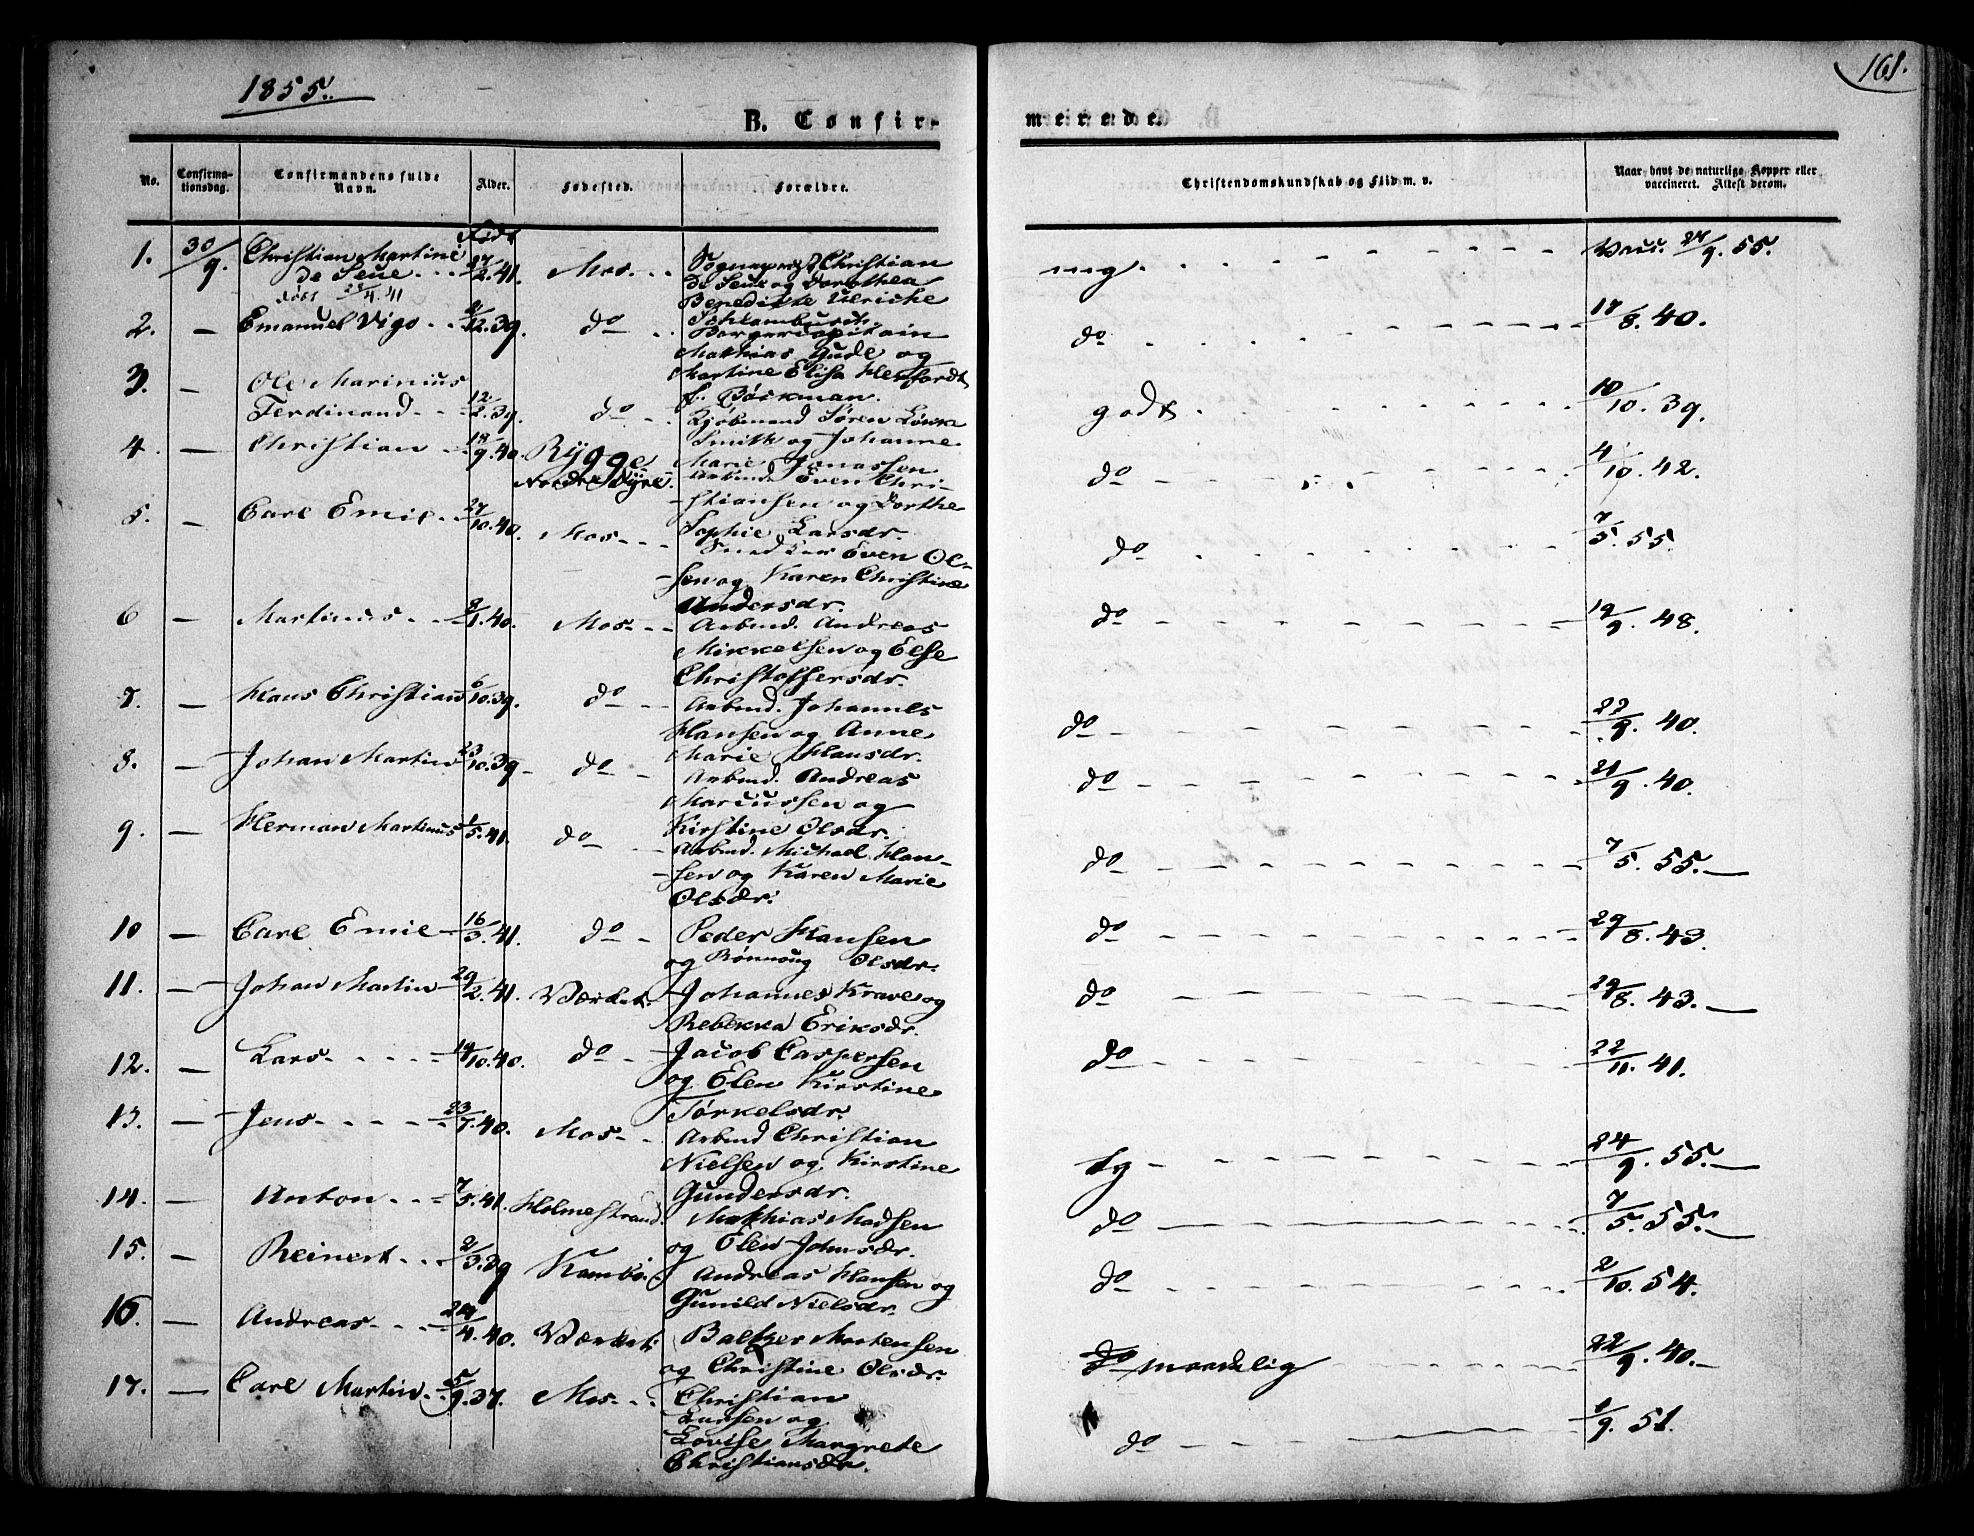 1855.
161.
B. Confir-
merede.
No.
Confirma-
tionsdag.
Confirmandens fulde
Navn.
Alder.
Fødested.
Forældre.
Christendomskundskab og Flid m. v.
Naar havt de naturlige Kopper eller
vaccineret. Attest derom.
1. 30/9. Christian Martini født
de Seue - - 27/2.41. Mos. - - Sogneprest Christian mg. - - - Vacc. 27/9. 55.
døbt 29/4.41 De Seue og Dorothea
Benedikte Ulriche
2. — Emanuel Vigo - - 8/12.39. do - - Borgercapitain do - - - 17/8. 40.
Mathias Gude og
Martine Elisa Herfordt
f. Bøckman.
3. — Ole Marinius
Ferdinand - - 12/2.39. do - - Kjøbmand Søren godt - - - 10/10. 39.
Smith og Johanne
Marie Jonassen
4. — Christian - - 18/9.40. Rygge Arbmd. Even Chri- do - - - 4/10. 42.
Nordre - stiansen og Dorthe
Sophie Larsdr.
5. — Carl Emil - - 27/10.40. Mos - - - Snedker Even Ol- do - - - 7/5. 55.
-sen og Karen Christine
Andersdr.
6 — Martinus - - 8/1.40. Mos - - Arbmd. Andreas do - - - 19/9. 48.
Mikkelsen og Else
Christoffersdr.
7. — Hans Christian 6/10.39. do - - Arbmd. Johannes do - - - 22/9. 40.
Hansen og Anne
Marie Hansdr.
8. — Johan Martin 23/10.39 - do - Arbmd. Andreas do - - - 21/9. 40.
Marcussen og
Kirstine Olsdr.
9. — Herman Martinus 1/5.41. do - - Arbmd. Michael Han- do - - - 7/5. 55. —
-sen og Karen Marie
Olsdr.
10 — Carl Emil - 16/3.41. do - Peder Hansen do - - - 29/8. 43.
og Rønnoug Olsdr.
11. — Johan Martin 20/2.41. Værket. Johannes Krave og do - - - 29/8. 43. —
Rebekka Eriksdr.
12. Lars - - - - 14/10.40. do - Jacob Caspersen do - - - 22/11. 41.
og Elen Kirstine
Torkelsdr.
13. — Jens - - - - 23/7.40. Mos - - Arbmd Christian tg - - - 24/9. 55. —
Nielsen og Kirstine
Gundersdr.
14. — Anton - - - 7/5.41. Holmestrand. Mathias Madsen do - - - 7/5. 55. —
og Elen Johnsdr.
15. — Reinert - - - 2/3.39 Kambo. Andreas Hansen og do - - - 2/10. 54.
Gunild Nielsdr.
16. — Andreas - - - 24/4.40. Værket. Baltzer Mortensen do maadelig - - - 22/9. 40. —
og Christine Olsdr.
17. — Carl Martin - 5/9.37. Mos - - - Christian do - - - 1/9. 51.
Larsen og
Lovise Margrete
Christiansdr.